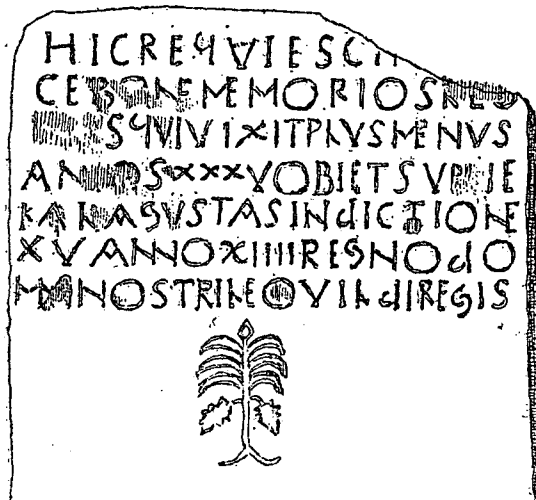 HIC REQVIESCI
CE BONE MEMORIOS
S QVI VIXIT PLVS MENVS
ANNOS XXXV OBIET SVP DIE
KAL AGVSTAS INdICTIONE
XV ANNO XIIII REGNO dO
MNO NOSTRI LEOVILdI REGIS